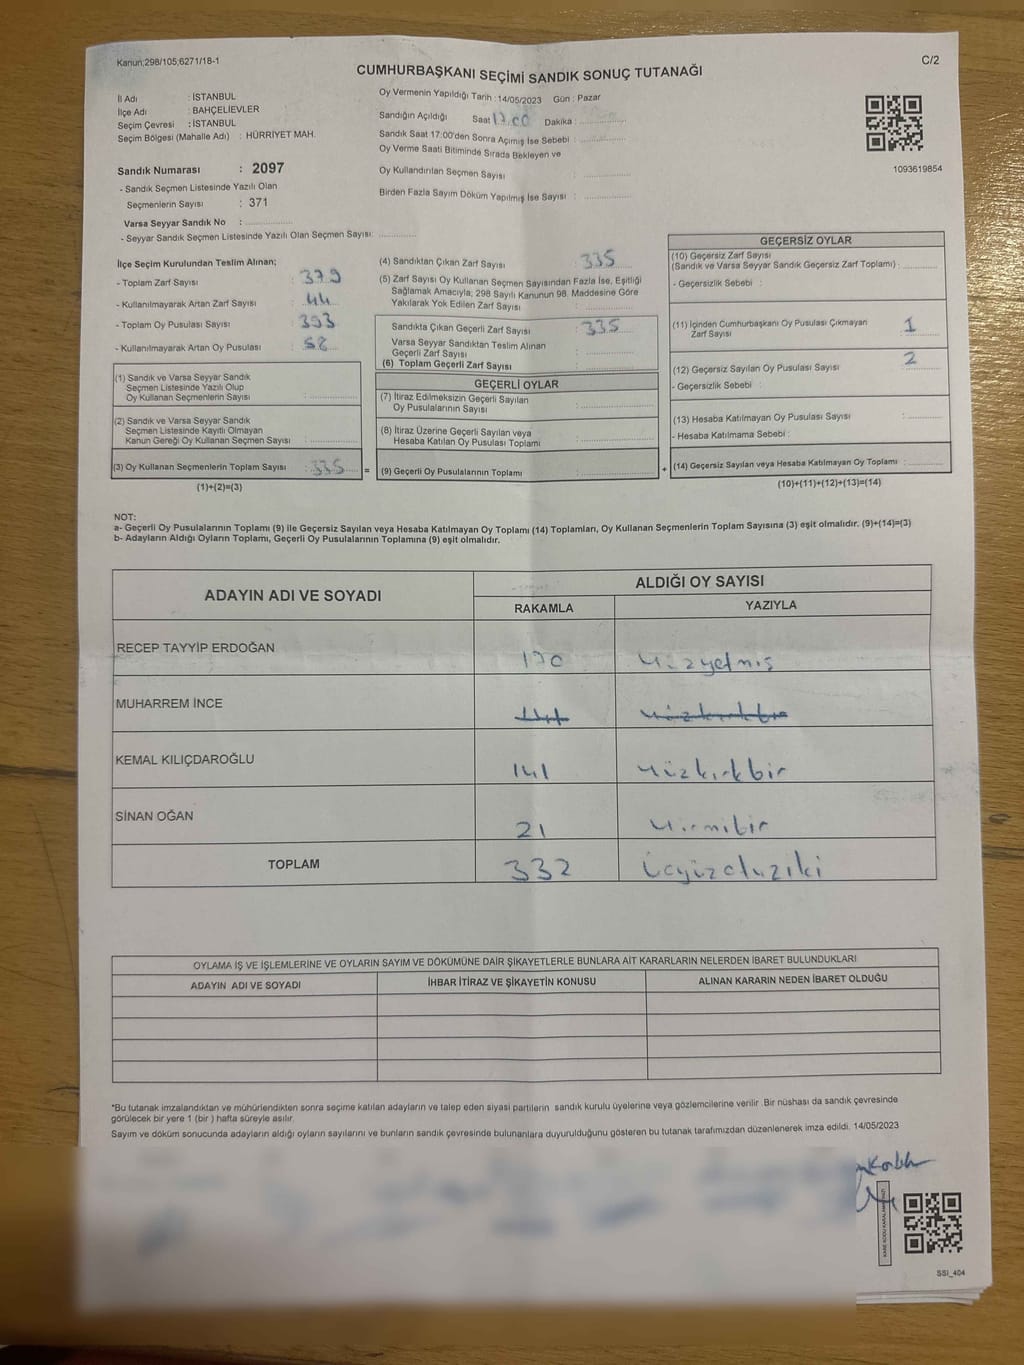 Kanun;298/105;6271/18-1
C/2
CUMHURBAŞKANI SEÇİMİ SANDIK SONUÇ TUTANAĞI
İl Adı : İSTANBUL
İlçe Adı : BAHÇELİEVLER
Seçim Çevresi : İSTANBUL
Seçim Bölgesi (Mahalle Adı) : HÜRRİYET MAH.
Sandık Numarası : 2097
- Sandık Seçmen Listesinde Yazılı Olan
Seçmenlerin Sayısı : 371
Varsa Seyyar Sandık No :
- Seyyar Sandık Seçmen Listesinde Yazılı Olan Seçmen Sayısı:
Oy Vermenin Yapıldığı Tarih : 14/05/2023 Gün : Pazar
Sandığın Açıldığı Saat 17.00 Dakika :
Sandık Saat 17:00'den Sonra Açımış İse Sebebi :
Oy Verme Saati Bitiminde Sırada Bekleyen ve
Oy Kullandırılan Seçmen Sayısı :
Birden Fazla Sayım Döküm Yapılmış İse Sayısı :
1093619854
İlçe Seçim Kurulundan Teslim Alınan;
- Toplam Zarf Sayısı : 379
- Kullanılmayarak Artan Zarf Sayısı : 44
- Toplam Oy Pusulası Sayısı : 393
- Kullanılmayarak Artan Oy Pusulası : 58
(1) Sandık ve Varsa Seyyar Sandık
Seçmen Listesinde Yazılı Olup
Oy Kullanan Seçmenlerin Sayısı :
(2) Sandık ve Varsa Seyyar Sandık
Seçmen Listesinde Kayıtlı Olmayan
Kanun Gereği Oy Kullanan Seçmen Sayısı :
(3) Oy Kullanan Seçmenlerin Toplam Sayısı : 335 =
(1)+(2)=(3)
(4) Sandıktan Çıkan Zarf Sayısı : 335
(5) Zarf Sayısı Oy Kullanan Seçmen Sayısından Fazla İse, Eşitliği
Sağlamak Amacıyla; 298 Sayılı Kanunun 98. Maddesine Göre
Yakılarak Yok Edilen Zarf Sayısı :
Sandıkta Çıkan Geçerli Zarf Sayısı : 335
Varsa Seyyar Sandıktan Teslim Alınan
Geçerli Zarf Sayısı :
(6) Toplam Geçerli Zarf Sayısı :
GEÇERLİ OYLAR
(7) İtiraz Edilmeksizin Geçerli Sayılan
Oy Pusulalarının Sayısı :
(8) İtiraz Üzerine Geçerli Sayılan veya
Hesaba Katılan Oy Pusulası Toplamı :
(9) Geçerli Oy Pusulalarının Toplamı : +
GEÇERSİZ OYLAR
(10) Geçersiz Zarf Sayısı
(Sandık ve Varsa Seyyar Sandık Geçersiz Zarf Toplamı) :
- Geçersizlik Sebebi :
(11) İçinden Cumhurbaşkanı Oy Pusulası Çıkmayan
Zarf Sayısı : 1
(12) Geçersiz Sayılan Oy Pusulası Sayısı : 2
- Geçersizlik Sebebi :
(13) Hesaba Katılmayan Oy Pusulası Sayısı :
- Hesaba Katılmama Sebebi :
(14) Geçersiz Sayılan veya Hesaba Katılmayan Oy Toplamı :
(10)+(11)+(12)+(13)=(14)
NOT:
a- Geçerli Oy Pusulalarının Toplamı (9) ile Geçersiz Sayılan veya Hesaba Katılmayan Oy Toplamı (14) Toplamları, Oy Kullanan Seçmenlerin Toplam Sayısına (3) eşit olmalıdır. (9)+(14)=(3)
b- Adayların Aldığı Oyların Toplamı, Geçerli Oy Pusulalarının Toplamına (9) eşit olmalıdır.
ADAYIN ADI VE SOYADI
ALDIĞI OY SAYISI
RAKAMLA YAZIYLA
RECEP TAYYİP ERDOĞAN 170 Yüzyetmiş
MUHARREM İNCE 141 Yüzkırkbir
KEMAL KILIÇDAROĞLU 141 Yüzkırkbir
SİNAN OĞAN 21 Yirmibir
TOPLAM 332 Üçyüzotuziki
OYLAMA İŞ VE İŞLEMLERİNE VE OYLARIN SAYIM VE DÖKÜMÜNE DAİR ŞİKAYETLERLE BUNLARA AİT KARARLARIN NELERDEN İBARET BULUNDUKLARI
ADAYIN ADI VE SOYADI İHBAR İTİRAZ VE ŞİKAYETİN KONUSU ALINAN KARARIN NEDEN İBARET OLDUĞU
*Bu tutanak imzalandıktan ve mühürlendikten sonra seçime katılan adayların ve talep eden siyasi partilerin sandık kurulu üyelerine veya gözlemcilerine verilir .Bir nüshası da sandık çevresinde
görülecek bir yere 1 (bir ) hafta süreyle asılır.
Sayım ve döküm sonucunda adayların aldığı oyların sayılarını ve bunların sandık çevresinde bulunanlara duyurulduğunu gösteren bu tutanak tarafımızdan düzenlenerek imza edildi. 14/05/2023
SSI_404